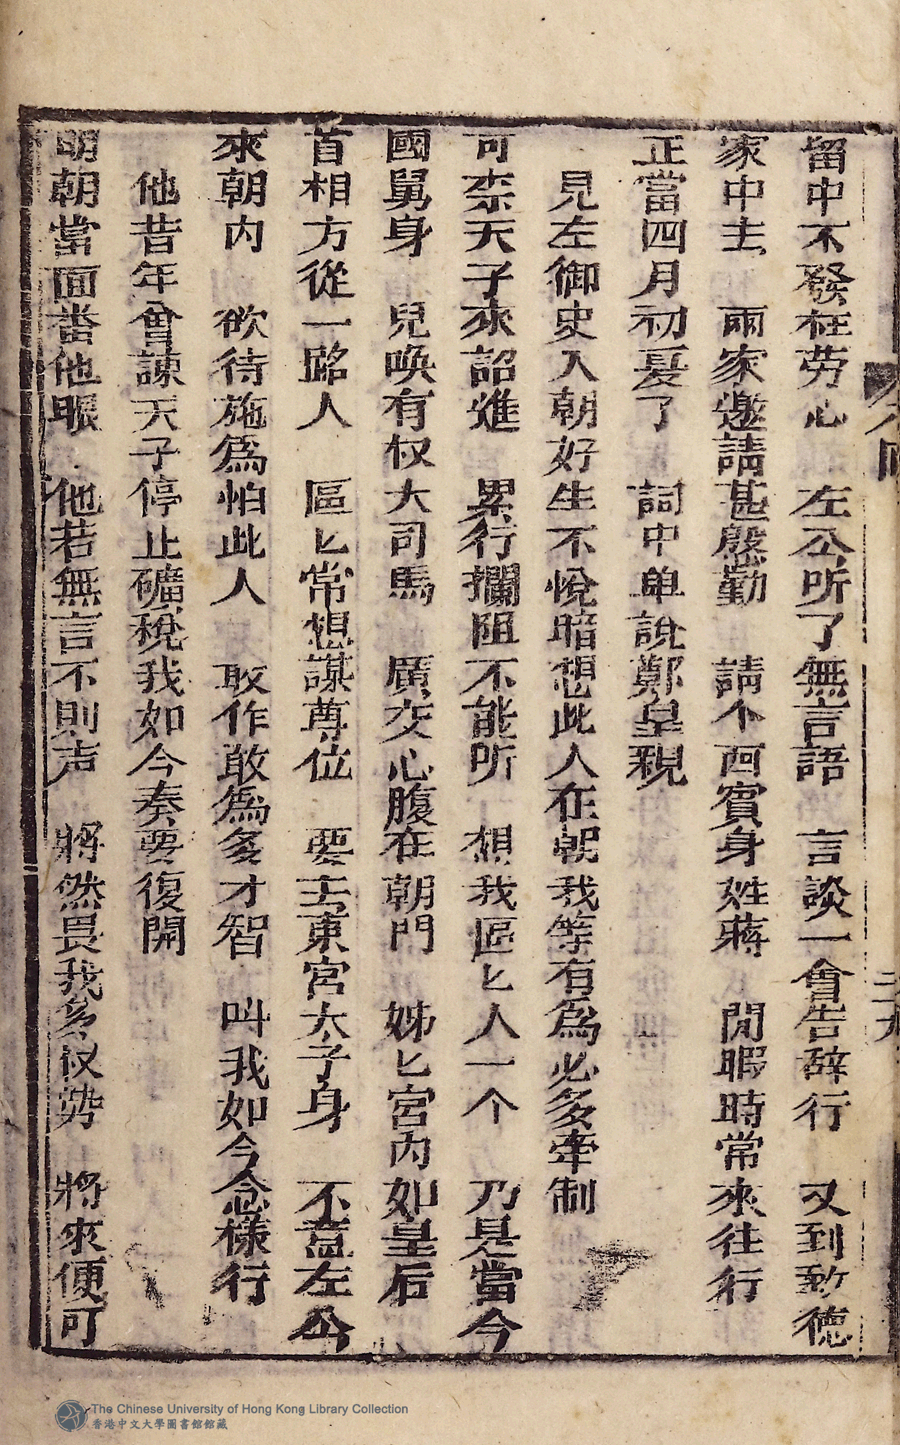 留中不發枉劳心　左公所了無言語　言談一會告辞行　又到致德
家中去　兩家邀請甚慇勤　請个西賓身姓蔣　閒暇時常來往行
正當四月初夏了　詞中单說鄭皇親
見左御史入朝好生不悅暗想此人在朝我等有爲必多牽制
可奈天子來詔進　累行攔阻不能所　想我區匕人一个　乃是當今
國舅身　兒喚有权大司馬　廣交心腹在朝門　姊匕宮內如皇后
首相方從一路人　區匕常想謀尊位　要去東宮太子身　不益左公
來朝內　欲待施爲怕此人　敢作敢爲多才智　叫我如今怎樣行
他昔年會諫天子停止礦稅我如今奏要復開
明朝當面畨他賬　他若無言不則声　將然畏我多权势　將來便可
二十九
The Chinese University of Hong Kong Library Collection
香港中文大學圖書館館藏